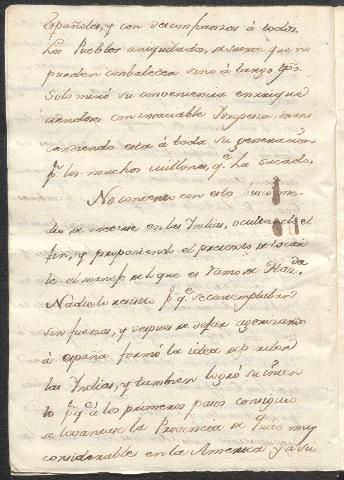 Españoles, y con desconfianza á todos.
Los Pueblos aniquilados, de suerte que no
pueden combalecer sino á largo tpo.
Solo miró su conveniencia enrique
ciendose con insaciable
cendiendo esta á toda su generacion
pr. los muchos millones, qe. ha sacado.
No contento con esto
dio de meterse en las Indias, ocultando el
fin, y proponiendo el pretexto de tocar
le el manejo de lo que es ramo de Haz.da
Nadie lo resistio pr. qe. se contemplaban
sin fuerzas, y despues de dejar agonizando
á españa formó la idea de perder
las Indias, y tambien logró su inten
to pr. qe. á los primeros pasos consiguió
se levantase la Provincia de Quito muy
considerable en la America y á su